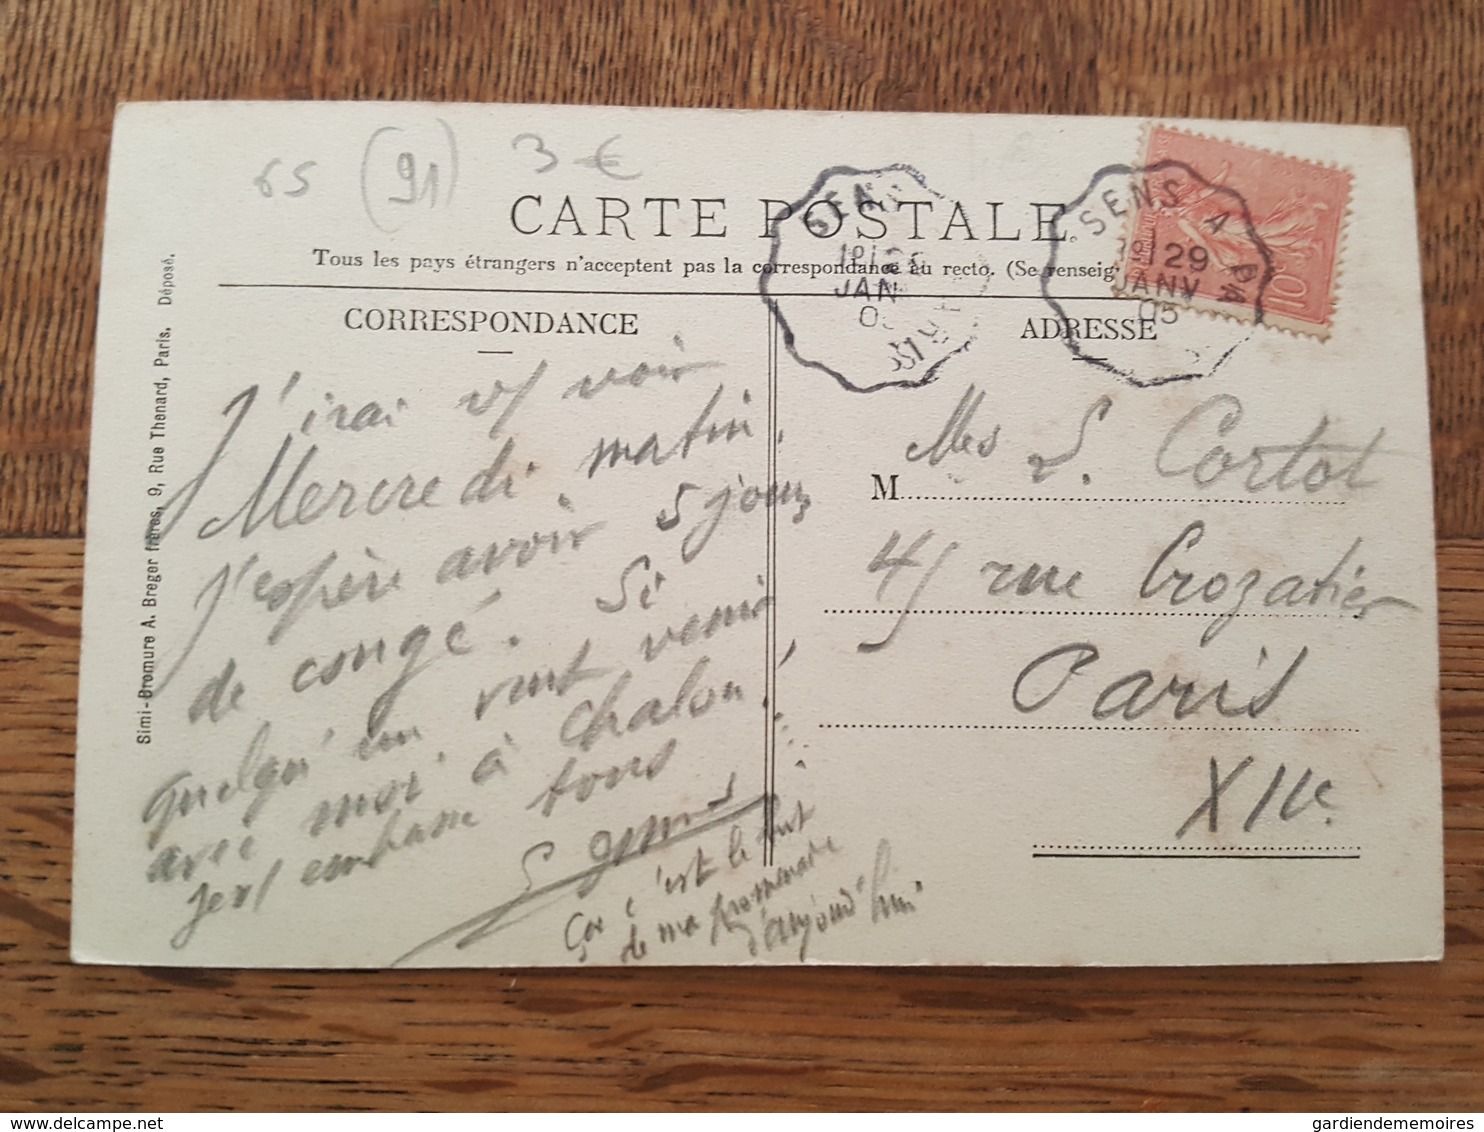 65 (91) 3 €
CARTE POSTALE
Tous les pays étrangers n'acceptent pas la correspondance au recto. (Se renseig
CORRESPONDANCE
ADRESSE
SENS
JAN
SENS A PA
29
JANV
05
10
J'irai vs voir
Mercredi matin.
J'espère avoir 5 jours
de congé. Si
quelqu'un veut venir
avec moi à Chalon!
je vs embrasse tous
Ça c'est le but
de ma promenade
d'aujourd'hui
M
Mes L. Cortot
41 rue Crozatier
Paris
XIIe
Simi-Bromure A. Breger frères, 9, Rue Thenard, Paris. Déposé.
gardiendememoires / delcampe.net